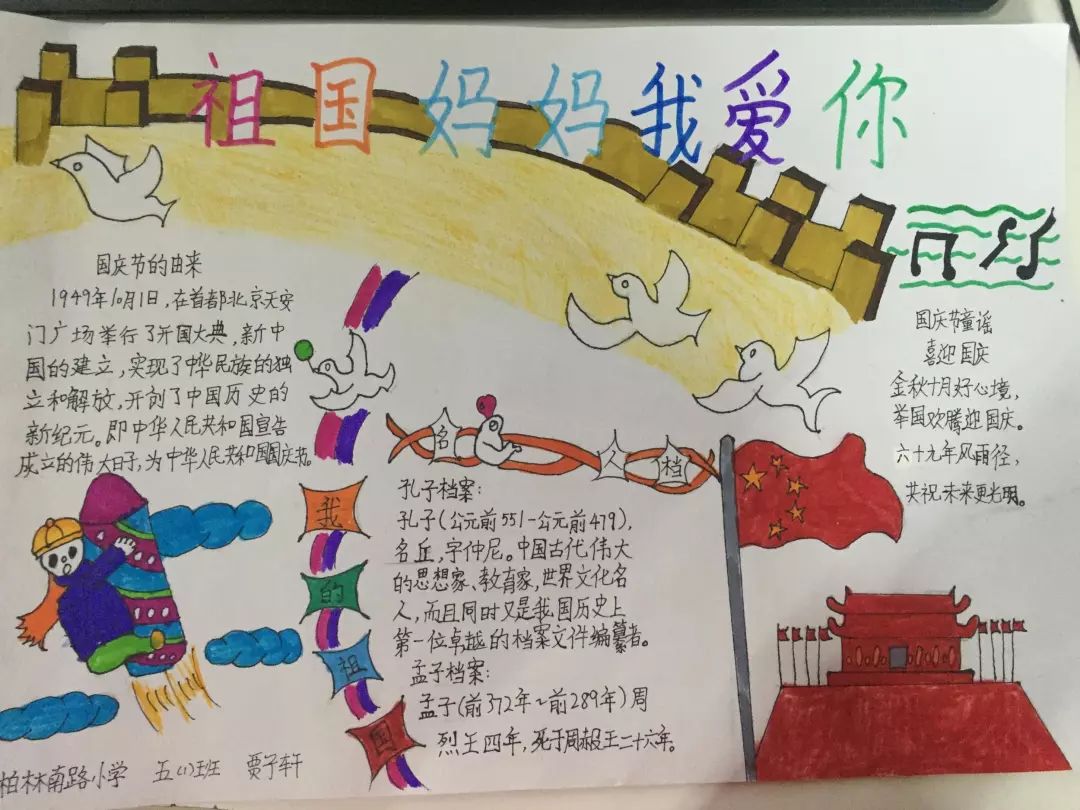 祖国妈妈我爱你
国庆节的由来
1949年10月1日，在首都北京天安
门广场举行了开国大典，新中
国的建立，实现了中华民族的独
立和解放，开创了中国历史的
新纪元。即中华人民共和国宣告
成立的伟大日子，为中华人民共和国国庆节。
我
的
祖
国
名人档
孔子档案：
孔子（公元前551-公元前479），
名丘，字仲尼。中国古代伟大
的思想家、教育家，世界文化名
人，而且同时又是我国历史上
第一位卓越的档案文件编纂者。
孟子档案：
孟子（前372年~前289年）周
烈王四年，死于周赧王二十六年。
国庆节童谣
喜迎国庆
金秋十月好心境，
举国欢腾迎国庆。
六十九年风雨径，
共祝未来更光明。
柏林南路小学 五（1）班 贾子轩